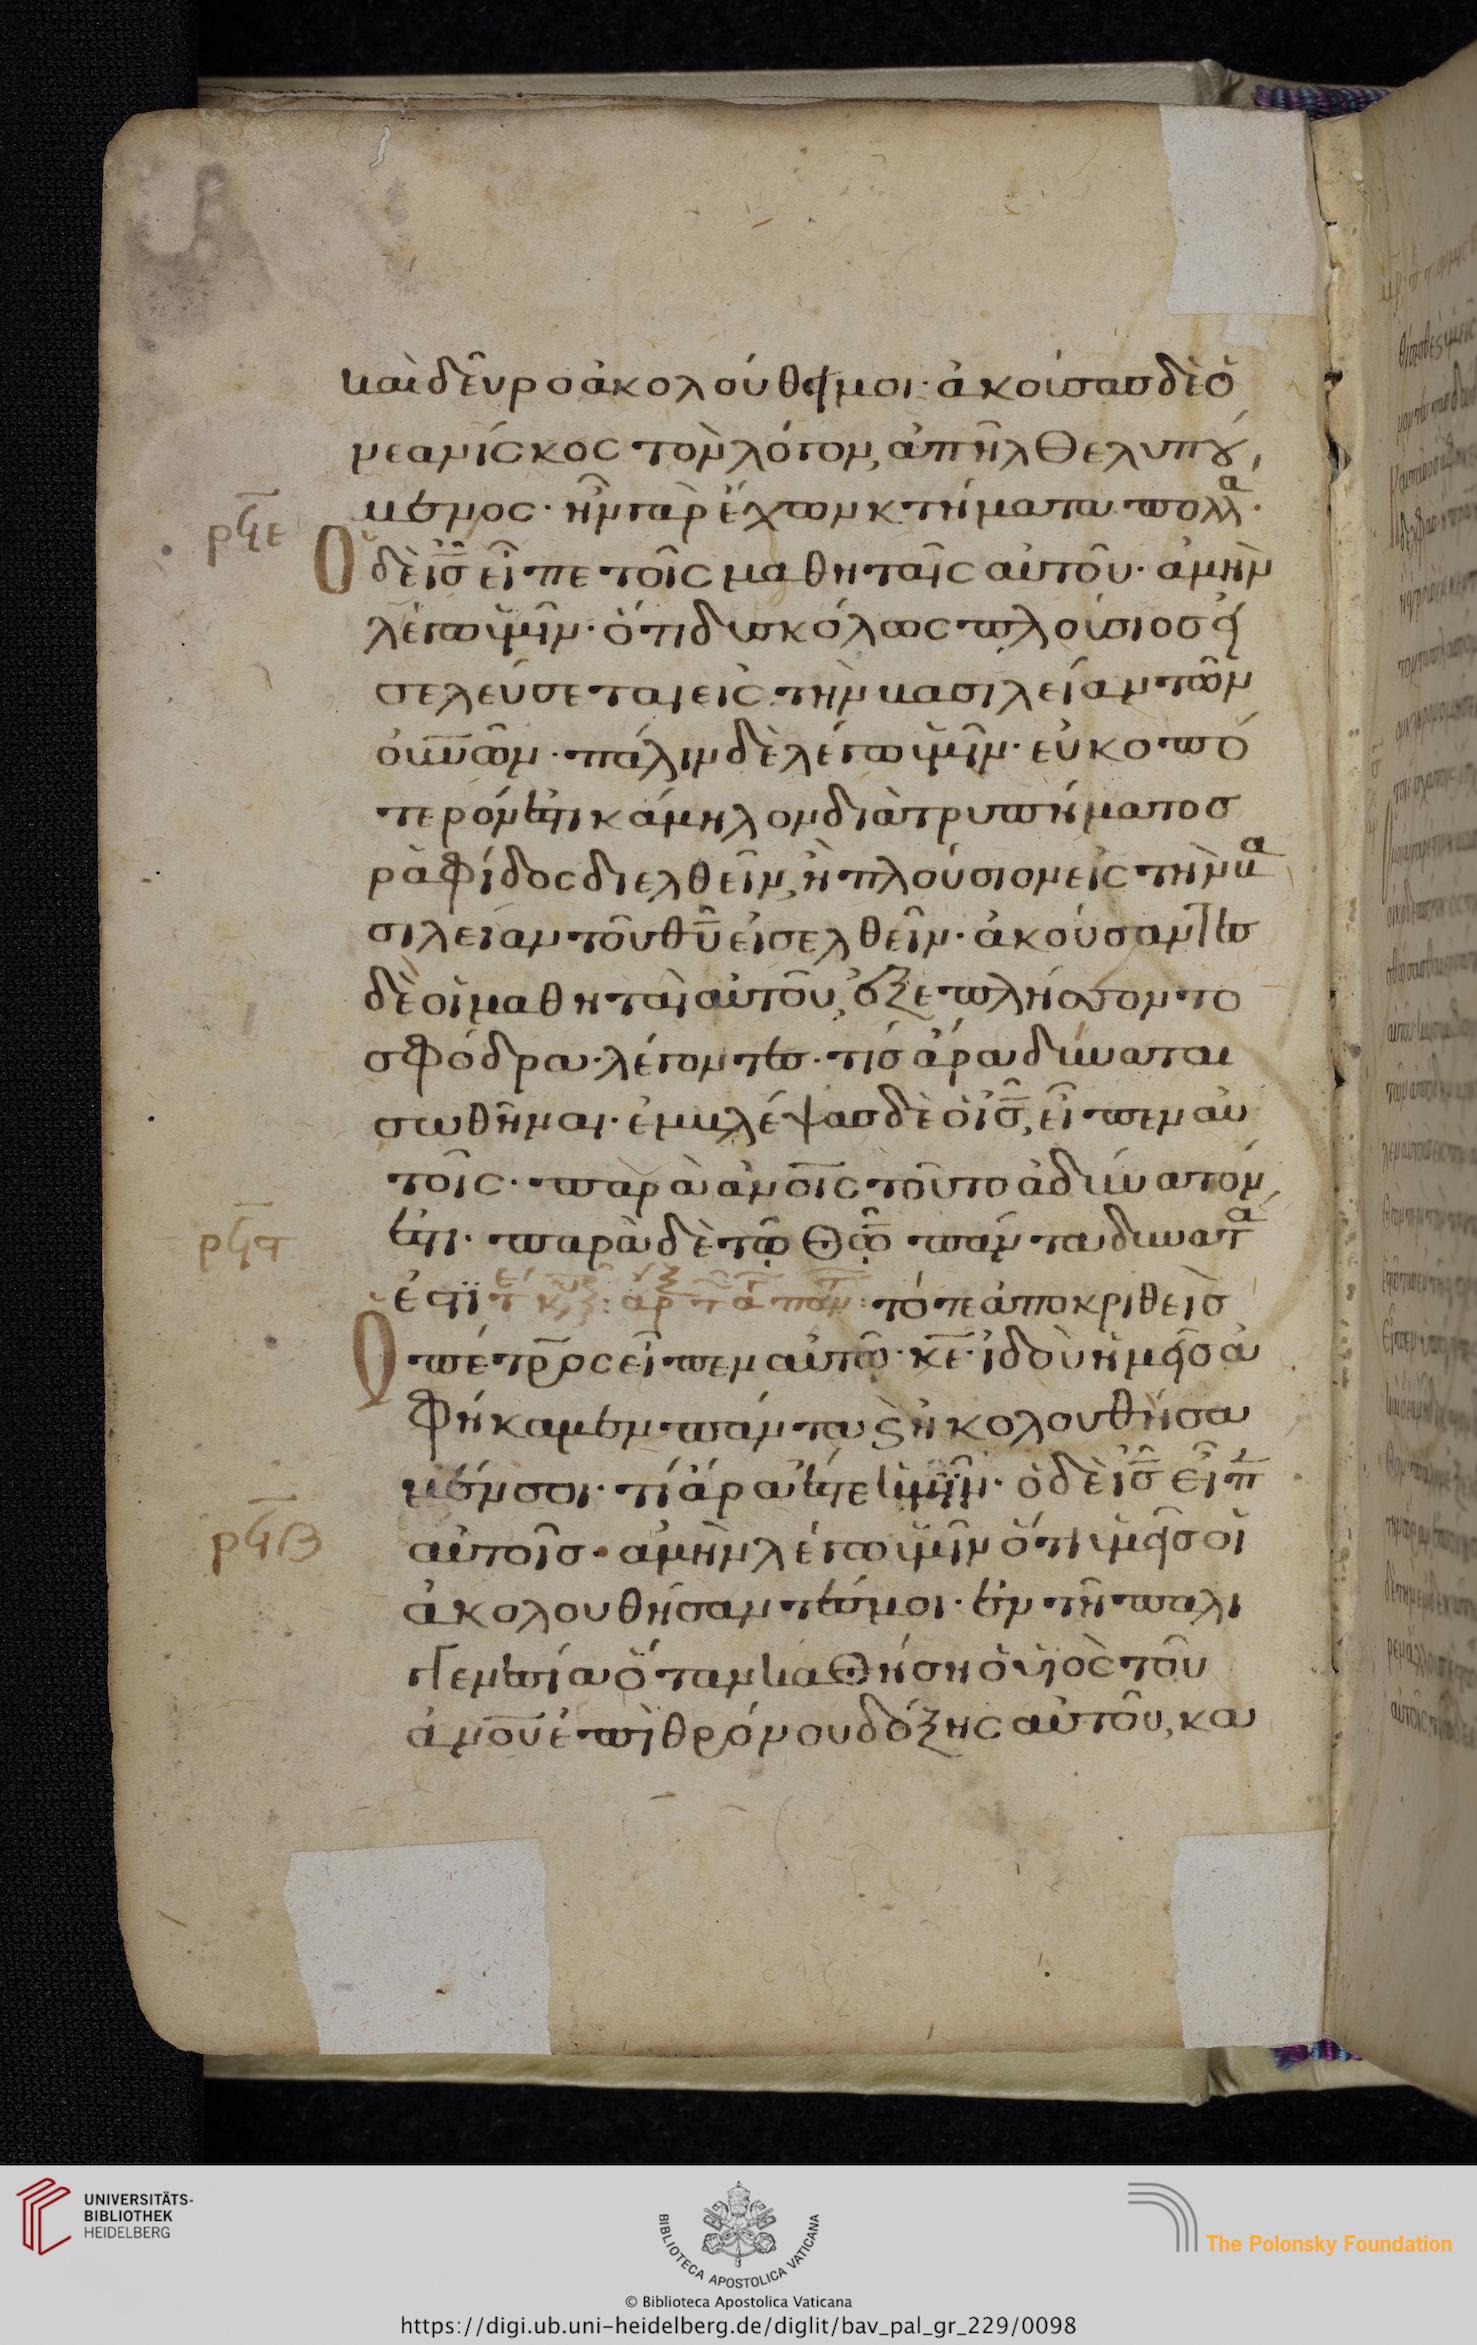 καὶ δεῦρο ἀκολούθει μοι· ἀκούσας δὲ ὁ
νεανίσκος τὸν λόγον, ἀπῆλθε λυπού
μενος· ἦν γὰρ ἔχων κτήματα πολλά·
ρϟε
Ὁ δὲ ις̅ εἶπε τοῖς μαθηταῖς αὐτοῦ· ἀμὴν
λέγω ὑμῖν· ὅτι δυσκόλως πλούσιος εἰ
σελεύσεται εἰς τὴν βασιλείαν τῶν
οὐνῶν· πάλιν δὲ λέγω ὑμῖν· εὐκοπό
τερόν ἐστι κάμηλον διὰ τρυπήματος
ραφίδος διελθεῖν, ἢ πλούσιον εἰς τὴν βα
σιλείαν τοῦ θυ̅ εἰσελθεῖν· ἀκούσαντες
δὲ οἱ μαθηταὶ αὐτοῦ, ἐξεπλήσσοντο
σφόδρα· λέγοντες· τίς ἄρα δύναται
σωθῆναι· ἐμβλέψας δὲ ὁ ις̅, εἶπεν αὐ
τοῖς· παρὰ ἀνοῖς τοῦτο ἀδύνατόν
ρϟϛ
ἐστι· παρὰ δὲ τῷ Θῷ πάντα δυνατά
ἐστι τότε ἀποκριθεὶς
Ὁ πέτρος εἶπεν αὐτῷ· κε̅· ἰδοὺ ἡμεῖς ἀ
φήκαμεν πάντα ϗ ἠκολουθήσα
μέν σοι· τί ἄρα ἔσται ἡμῖν· ὁ δὲ ις̅ εἶπ
ρϟζ
αὐτοῖς· ἀμὴν λέγω ὑμῖν ὅτι ὑμεῖς οἱ
ἀκολουθήσαντές μοι· ἐν τῇ παλι
γγενεσία ὅταν καθήση ὁ υἱὸς τοῦ
ἀνου̅ ἐπὶ θρόνου δόξης αὐτοῦ, κα
UNIVERSITÄTS-
BIBLIOTHEK
HEIDELBERG
BIBLIOTECA APOSTOLICA VATICANA
The Polonsky Foundation
© Biblioteca Apostolica Vaticana
https://digi.ub.uni-heidelberg.de/diglit/bav_pal_gr_229/0098